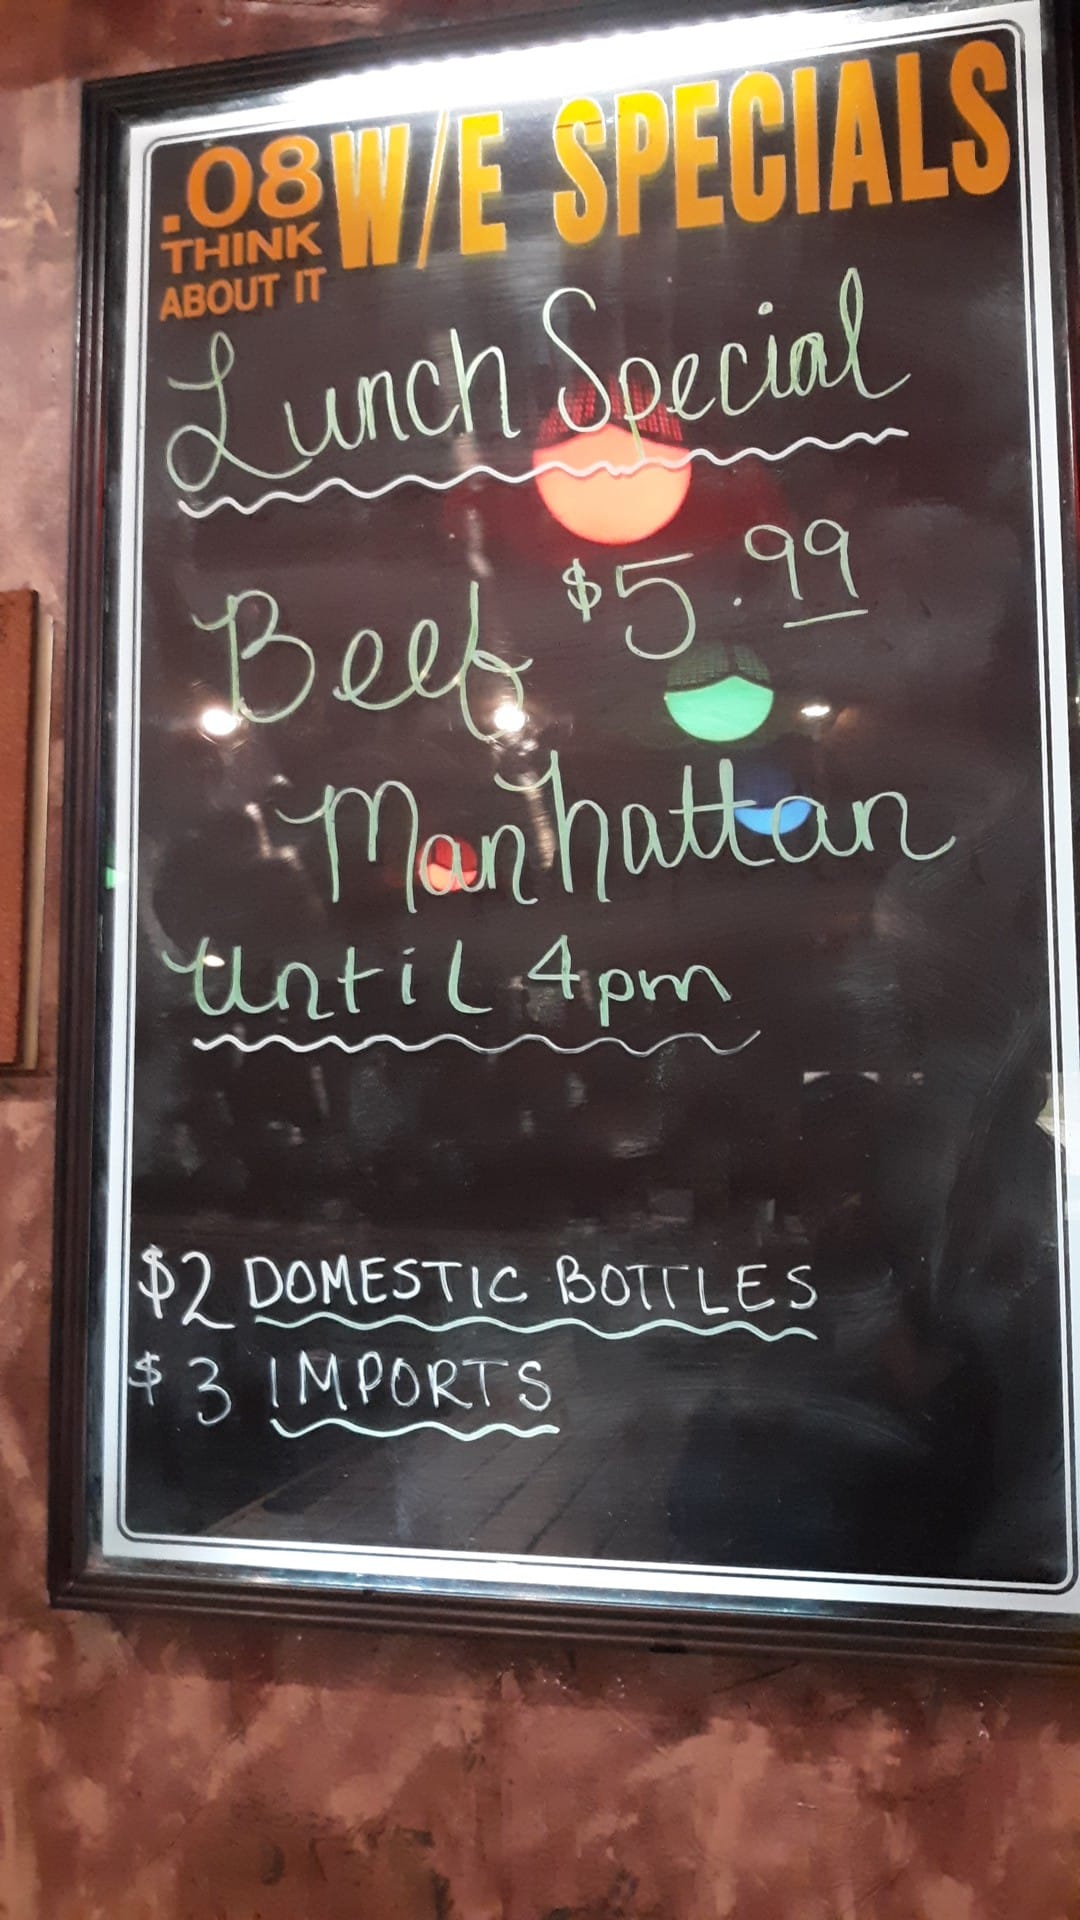 .08
THINK
ABOUT IT
W/E SPECIALS
Lunch Special
$5.99
Beef
Manhattan
Until 4pm
$2 DOMESTIC BOTTLES
$3 IMPORTS